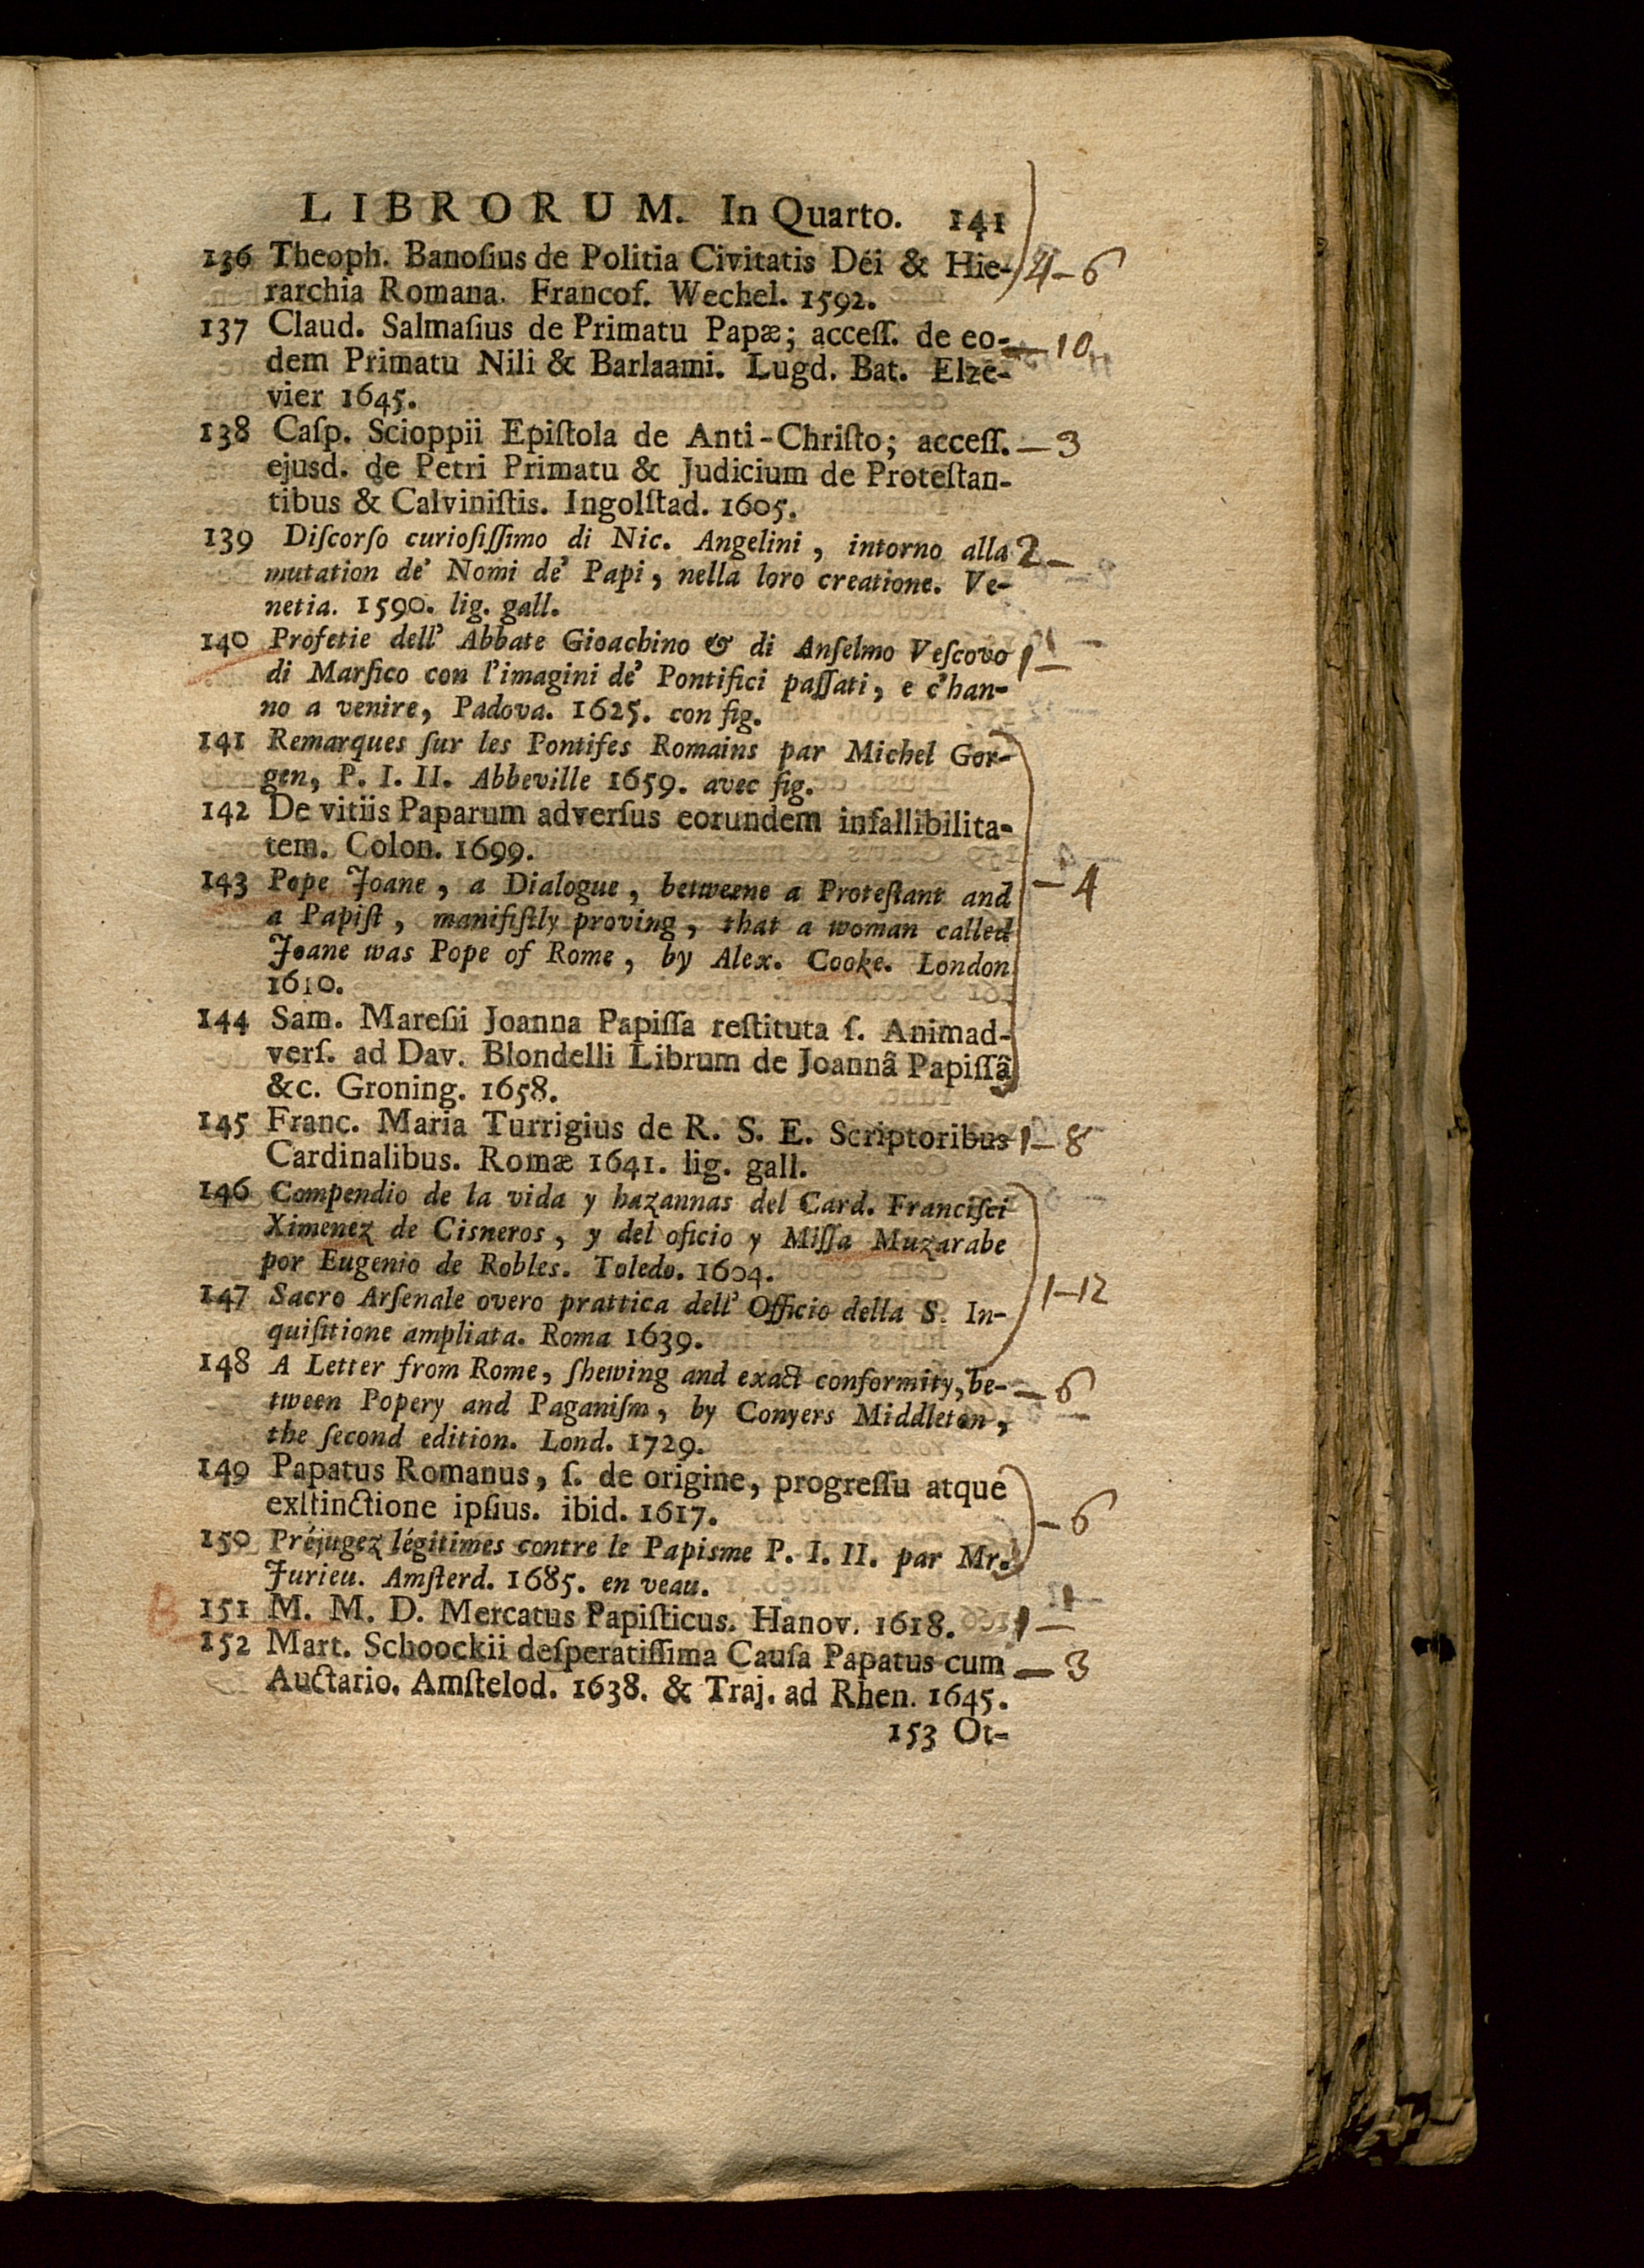 LIBRORUM. In Quarto. 141
136 Theoph. Banoſius de Politia Civitatis Déi & Hie- 4–6
rarchia Romana. Francof. Wechel. 1592.
137 Claud. Salmaſius de Primatu Papæ; acceſſ. de eo- –10
dem Primatu Nili & Barlaami. Lugd. Bat. Elze-
vier 1645.
138 Caſp. Scioppii Epiſtola de Anti-Chriſto; acceſſ. –3
ejusd. de Petri Primatu & Judicium de Proteſtan-
tibus & Calviniſtis. Ingolſtad. 1605.
139 Diſcorſo curioſiſſimo di Nic. Angelini, intorno alla 2–
mutation de' Nomi de' Papi, nella loro creatione. Ve-
netia. 1590. lig. gall.
140 Profetie dell' Abbate Gioachino & di Anſelmo Veſcovo 1–
di Marſico con l'imagini de' Pontifici paſſati, e c'han-
no a venire, Padova. 1625. con fig.
141 Remarques ſur les Pontifes Romains par Michel Gor-
gen, P. I. II. Abbeville 1659. avec fig.
142 De vitiis Paparum adverſus eorundem infallibilita-
tem. Colon. 1699.
143 Pope Joane, a Dialogue, betweene a Proteſtant and –4
a Papiſt, manifiſtly proving, that a woman called
Joane was Pope of Rome, by Alex. Cooke. London
1610.
144 Sam. Mareſii Joanna Papiſſa reſtituta ſ. Animad-
verſ. ad Dav. Blondelli Librum de Joannâ Papiſſâ
&c. Groning. 1658.
145 Franc. Maria Turrigius de R. S. E. Scriptoribus 1–8
Cardinalibus. Romæ 1641. lig. gall.
146 Compendio de la vida y hazannas del Card. Franciſci
Ximenez de Cisneros, y del oficio y Miſſa Muzarabe
por Eugenio de Robles. Toledo. 1604.
147 Sacro Arſenale overo prattica dell' Officio della S. In- 1–12
quiſitione ampliata. Roma 1639.
148 A Letter from Rome, ſhewing and exact conformity, be- –6
tween Popery and Paganiſm, by Conyers Middleton,
the ſecond edition. Lond. 1729.
149 Papatus Romanus, ſ. de origine, progreſſu atque
exſtinctione ipſius. ibid. 1617. –6
150 Préjugez légitimes contre le Papisme P. I. II. par Mr.
Jurieu. Amſterd. 1685. en veau.
B 151 M. M. D. Mercatus Papiſticus. Hanov. 1618. 1–
152 Mart. Schoockii deſperatiſſima Cauſa Papatus cum –3
Auctario. Amſtelod. 1638. & Traj. ad Rhen. 1645.
153 Ot-